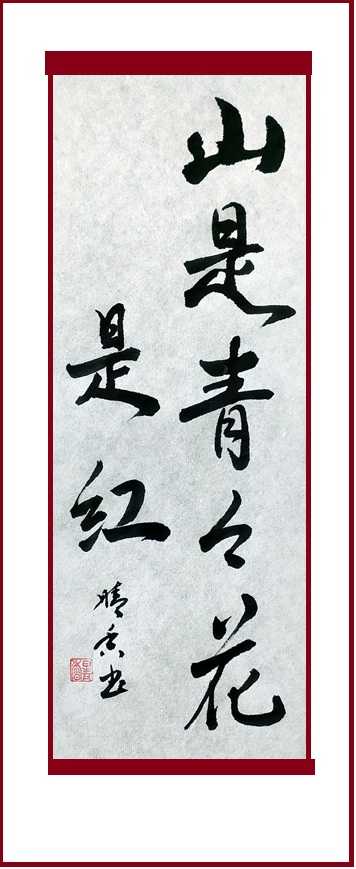 山是青々花
是紅
晴香書